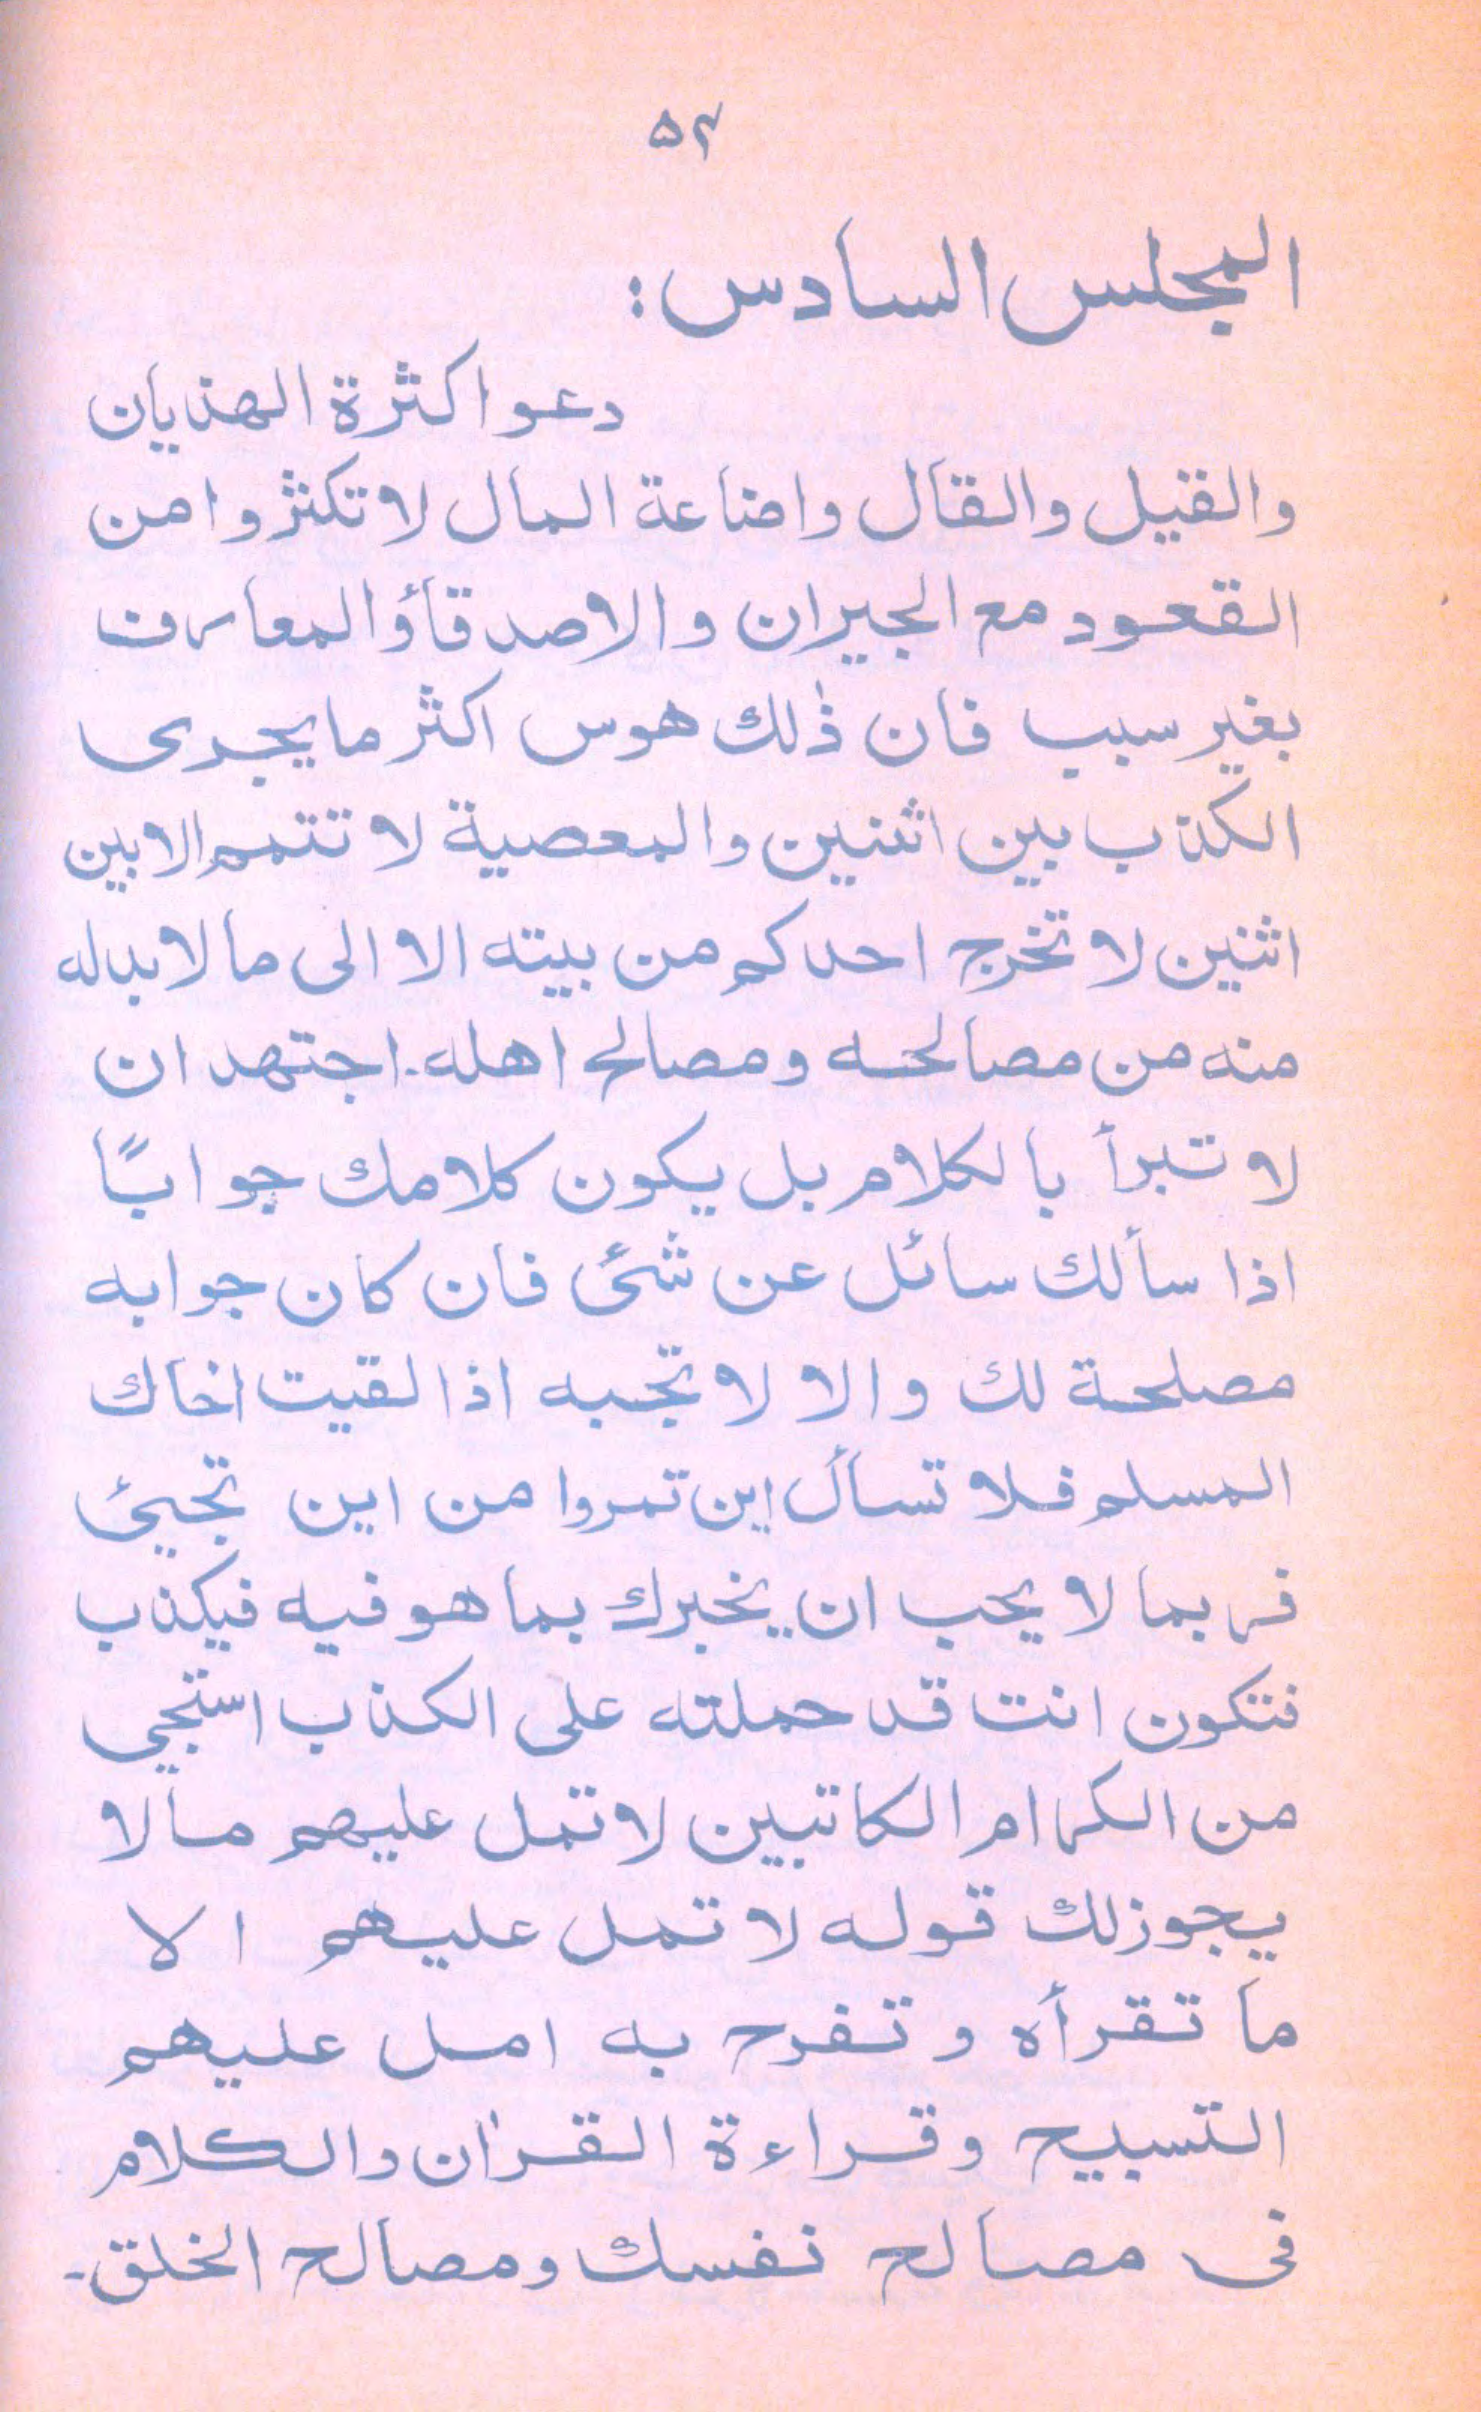 ۵۲
المجلس السادس:
دعوا كثرة الهذيان
والقيل والقال واضاعة المال لا تكثروا من
القعود مع الجيران والاصدقاؤ المعارف
بغير سبب فان ذٰلك هوس اكثر ما يجرى
الكذب بين اثنين والمعصية لا تتمم الا بين
اثنين لا تخرج احدكم من بيته الا الى ما لا بد له
منه من مصالحه ومصالح اهله. اجتهد ان
لا تبرأ بالكلام بل يكون كلامك جوابًا
اذا سألك سائل عن شئ فان كان جوابه
مصلحة لك والا لا تجبه اذا لقيت اخاك
المسلم فلا تسأل اين تمروا من اين تجيئ
فربما لا يحب ان يخبرك بما هو فيه فيكذب
فتكون انت قد حملته على الكذب استجي
من الكرام الكاتبين لا تمل عليهم مالا
يجوز لك قوله لا تمل عليهم الا
ما تقرأه و تفرح به امل عليهم
التسبيح وقراءة القرأن والكلام
فى مصالح نفسك ومصالح الخلق۔